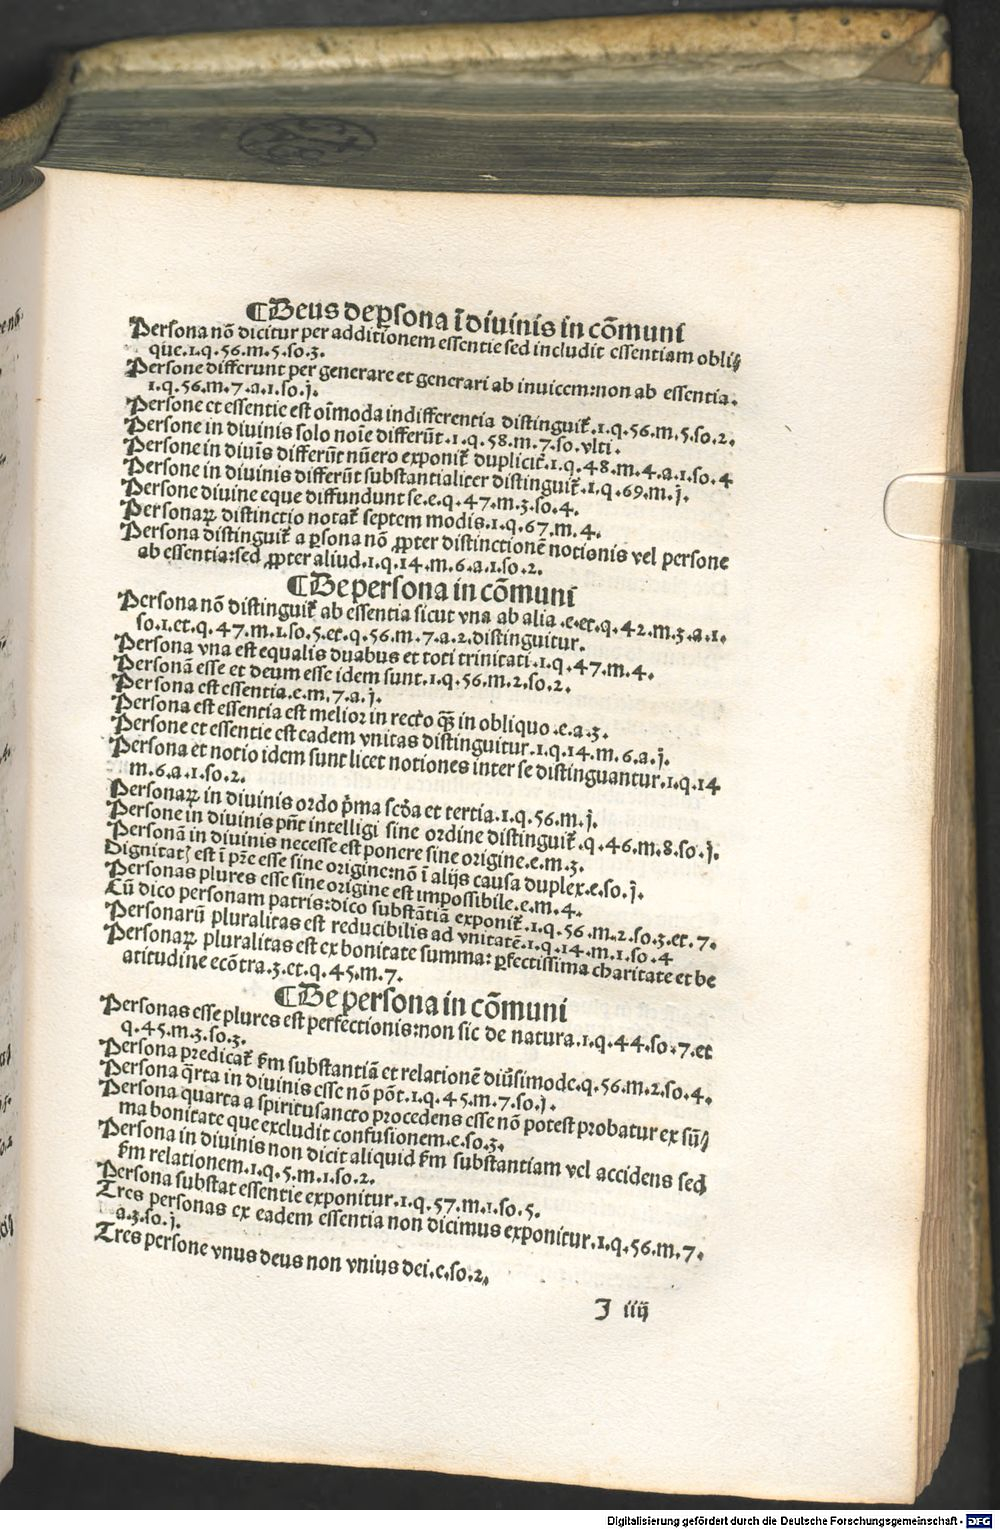 ¶Deus de ꝑsona ī diuinis in cōmuni
Persona nō dicitur per additionem essentie sed includit essentiam obli⸗
que.1.q.56.m.5.so.3.
Persone differunt per generare et generari ab inuicem:non ab essentia.
1.q.56.m.7.a.1.so.j.
Persone et essentie est oīmoda indifferentia distinguit᷑.1.q.56.m.5.so.2.
Persone in diuinis solo noīe differūt.1.q.58.m.7.so.vlti.
Persone in diuīs differūt nūero exponit᷑ duplicit᷑.1.q.48.m.4.a.1.so.4
Persone in diuinis differūt substantialiter distinguit᷑.1.q.69.m.j.
Persone diuine eque diffundunt se.e.q.47.m.3.so.4.
Personaꝝ distinctio notat᷑ septem modis.1.q.67.m.4.
Persona distinguit᷑ a ꝑsona nō ꝓpter distinctionē notionis vel persone
ab essentia:sed ꝓpter aliud.1.q.14.m.6.a.1.so.2.
¶De persona in cōmuni
Persona nō distinguit᷑ ab essentia sicut vna ab alia.e.et.q.42.m.3.a.1.
so.1.et.q.47.m.1.so.5.et.q.56.m.7.a.2.distinguitur.
Persona vna est equalis duabus et toti trinitati.1.q.47.m.4.
Personā esse et deum esse idem sunt.1.q.56.m.2.so.2.
Persona est essentia.e.m.7.a.j.
Persona est essentia est melior in recto q̄ꝫ in obliquo.e.a.3.
Persone et essentie est eadem vnitas distinguitur.1.q.14.m.6.a.j.
Persona et notio idem sunt licet notiones inter se distinguantur.1.q.14
m.6.a.1.so.2.
Personaꝝ in diuinis ordo p̄ma scd̄a et tertia.1.q.56.m.j.
Persone in diuinis pn̄t intelligi sine ordine distinguit᷑.q.46.m.8.so.j.
Personā in diuinis necesse est ponere sine origine.e.m.3.
Dignitatꝭ est ī pr̄e esse sine origine:nō ī alijs causa duplex.e.so.j.
Personas plures esse sine origine est impossibile.e.m.4.
Cū dico personam patris:dico substātiā exponit᷑.1.q.56.m.2.so.3.et.7.
Personarū pluralitas est reducibilis ad vnitatē.1.q.14.m.1.so.4
Personaꝝ pluralitas est ex bonitate summa:ꝑfectissima charitate et be
atitudine ecōtra.3.et.q.45.m.7.
¶De persona in cōmuni
Personas esse plures est perfectionis:non sic de natura.1.q.44.so.7.et
q.45.m.3.so.3.
Persona predicat᷑ ẜm substantiā et relationē diūsimode.q.56.m.2.so.4.
Persona q̄rta in diuinis esse nō pōt.1.q.45.m.7.so.j.
Persona quarta a spiritusancto procedens esse nō potest probatur ex sū⸗
ma bonitate que excludit confusionem.e.so.3.
Persona in diuinis non dicit aliquid ẜm substantiam vel accidens sed
ẜm relationem.1.q.5.m.1.so.2.
Persona substat essentie exponitur.1.q.57.m.1.so.5.
Tres personas ex eadem essentia non dicimus exponitur.1.q.56.m.7.
a.3.so.j.
Tres persone vnus deus non vnius dei.e.so.2.
J iiij
Digitalisierung gefördert durch die Deutsche Forschungsgemeinschaft - DFG